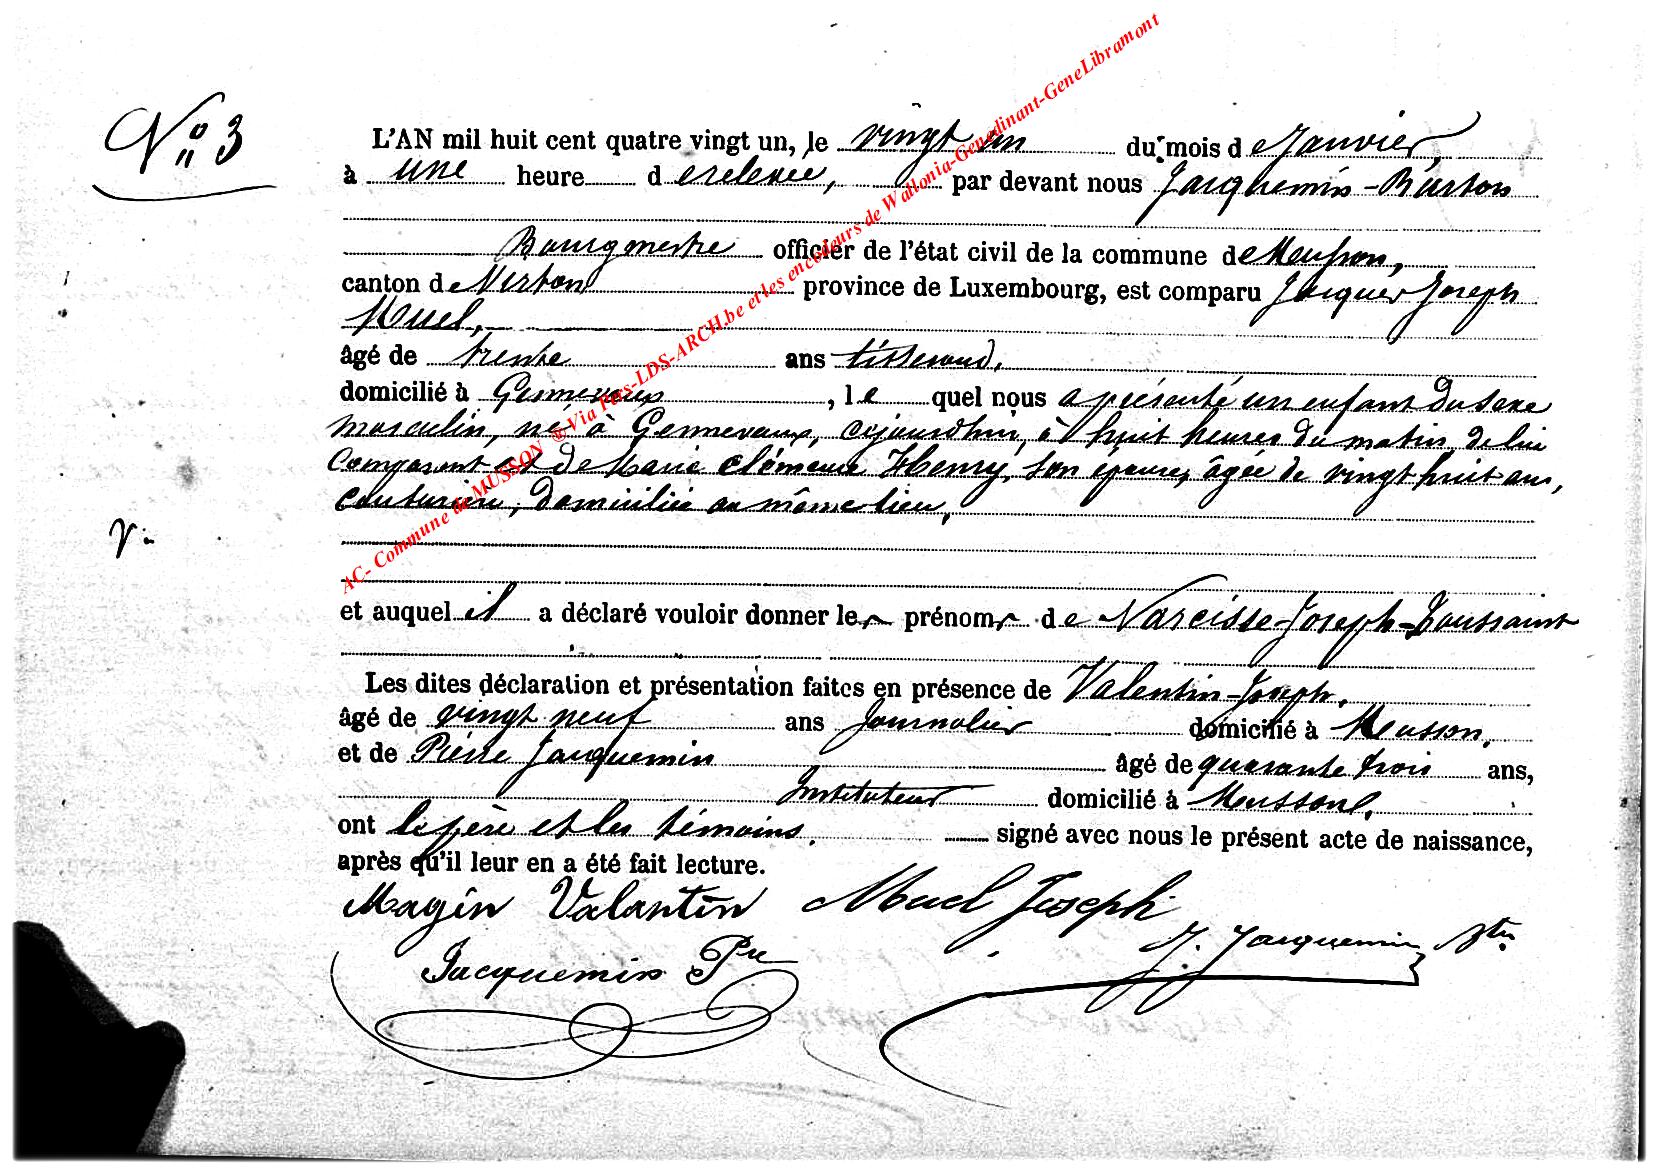 N° 3
L'AN mil huit cent quatre vingt un, le vingt un du mois de Janvier,
à une heure de relevée, par devant nous Jacquemin-Burton
Bourgmestre officier de l'état civil de la commune de Musson,
canton de Virton province de Luxembourg, est comparu Jacques Joseph
Muel,
âgé de trente ans tisserand,
domicilié à Gennevaux, le quel nous a présenté un enfant du sexe
masculin, né à Gennevaux, aujourdhui, à huit heures du matin, de lui
comparant et de Marie Clémence Henry, son épouse, âgée de vingt huit ans,
couturière, domiciliée au même lieu,
et auquel il a déclaré vouloir donner les prénoms de Narcisse-Joseph-Toussaint
Les dites déclaration et présentation faites en présence de Valentin-Joseph,
âgé de vingt neuf ans Journalier domicilié à Musson,
et de Pierre Jacquemin âgé de quarante trois ans,
Instituteur domicilié à Musson,
ont le père et les témoins, signé avec nous le présent acte de naissance,
après qu'il leur en a été fait lecture.
Magin Valantin Muel Joseph
J. Jacquemin Btn
Jacquemin Pre
AC- Commune de MUSSON ®Via Fens-LDS-ARCH.be et les encodeurs de Wallonia-Genedinant-GeneLibramont